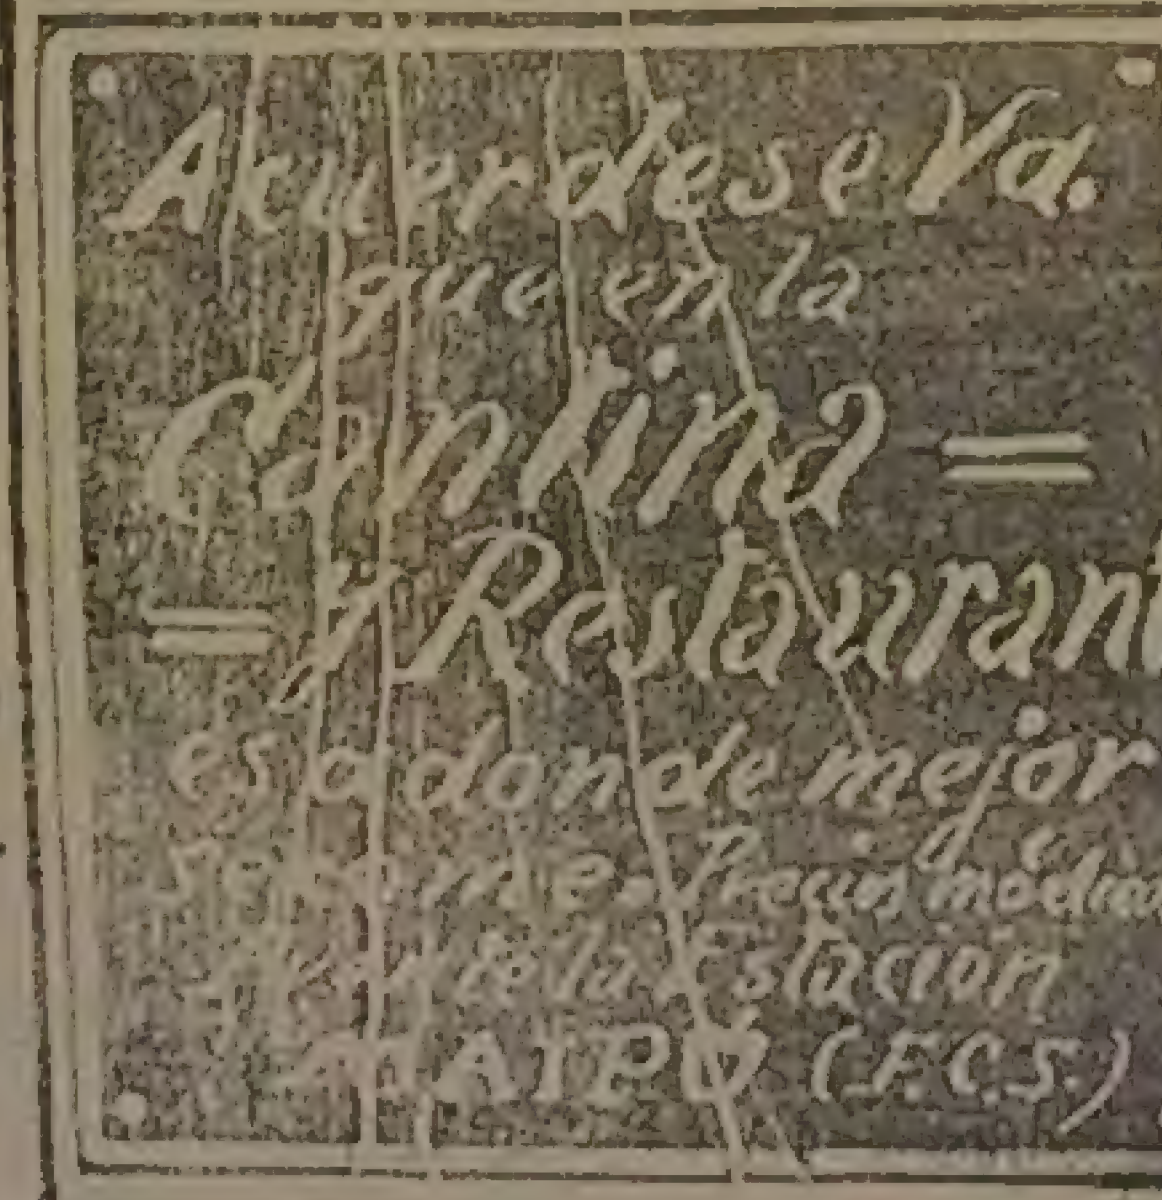 Acuerdese Vd.
que en la
Cantina =
= y Restaurant
es adonde mejor
se come. Precios módicos
de la Estación
MAIPO (F.C.S.)